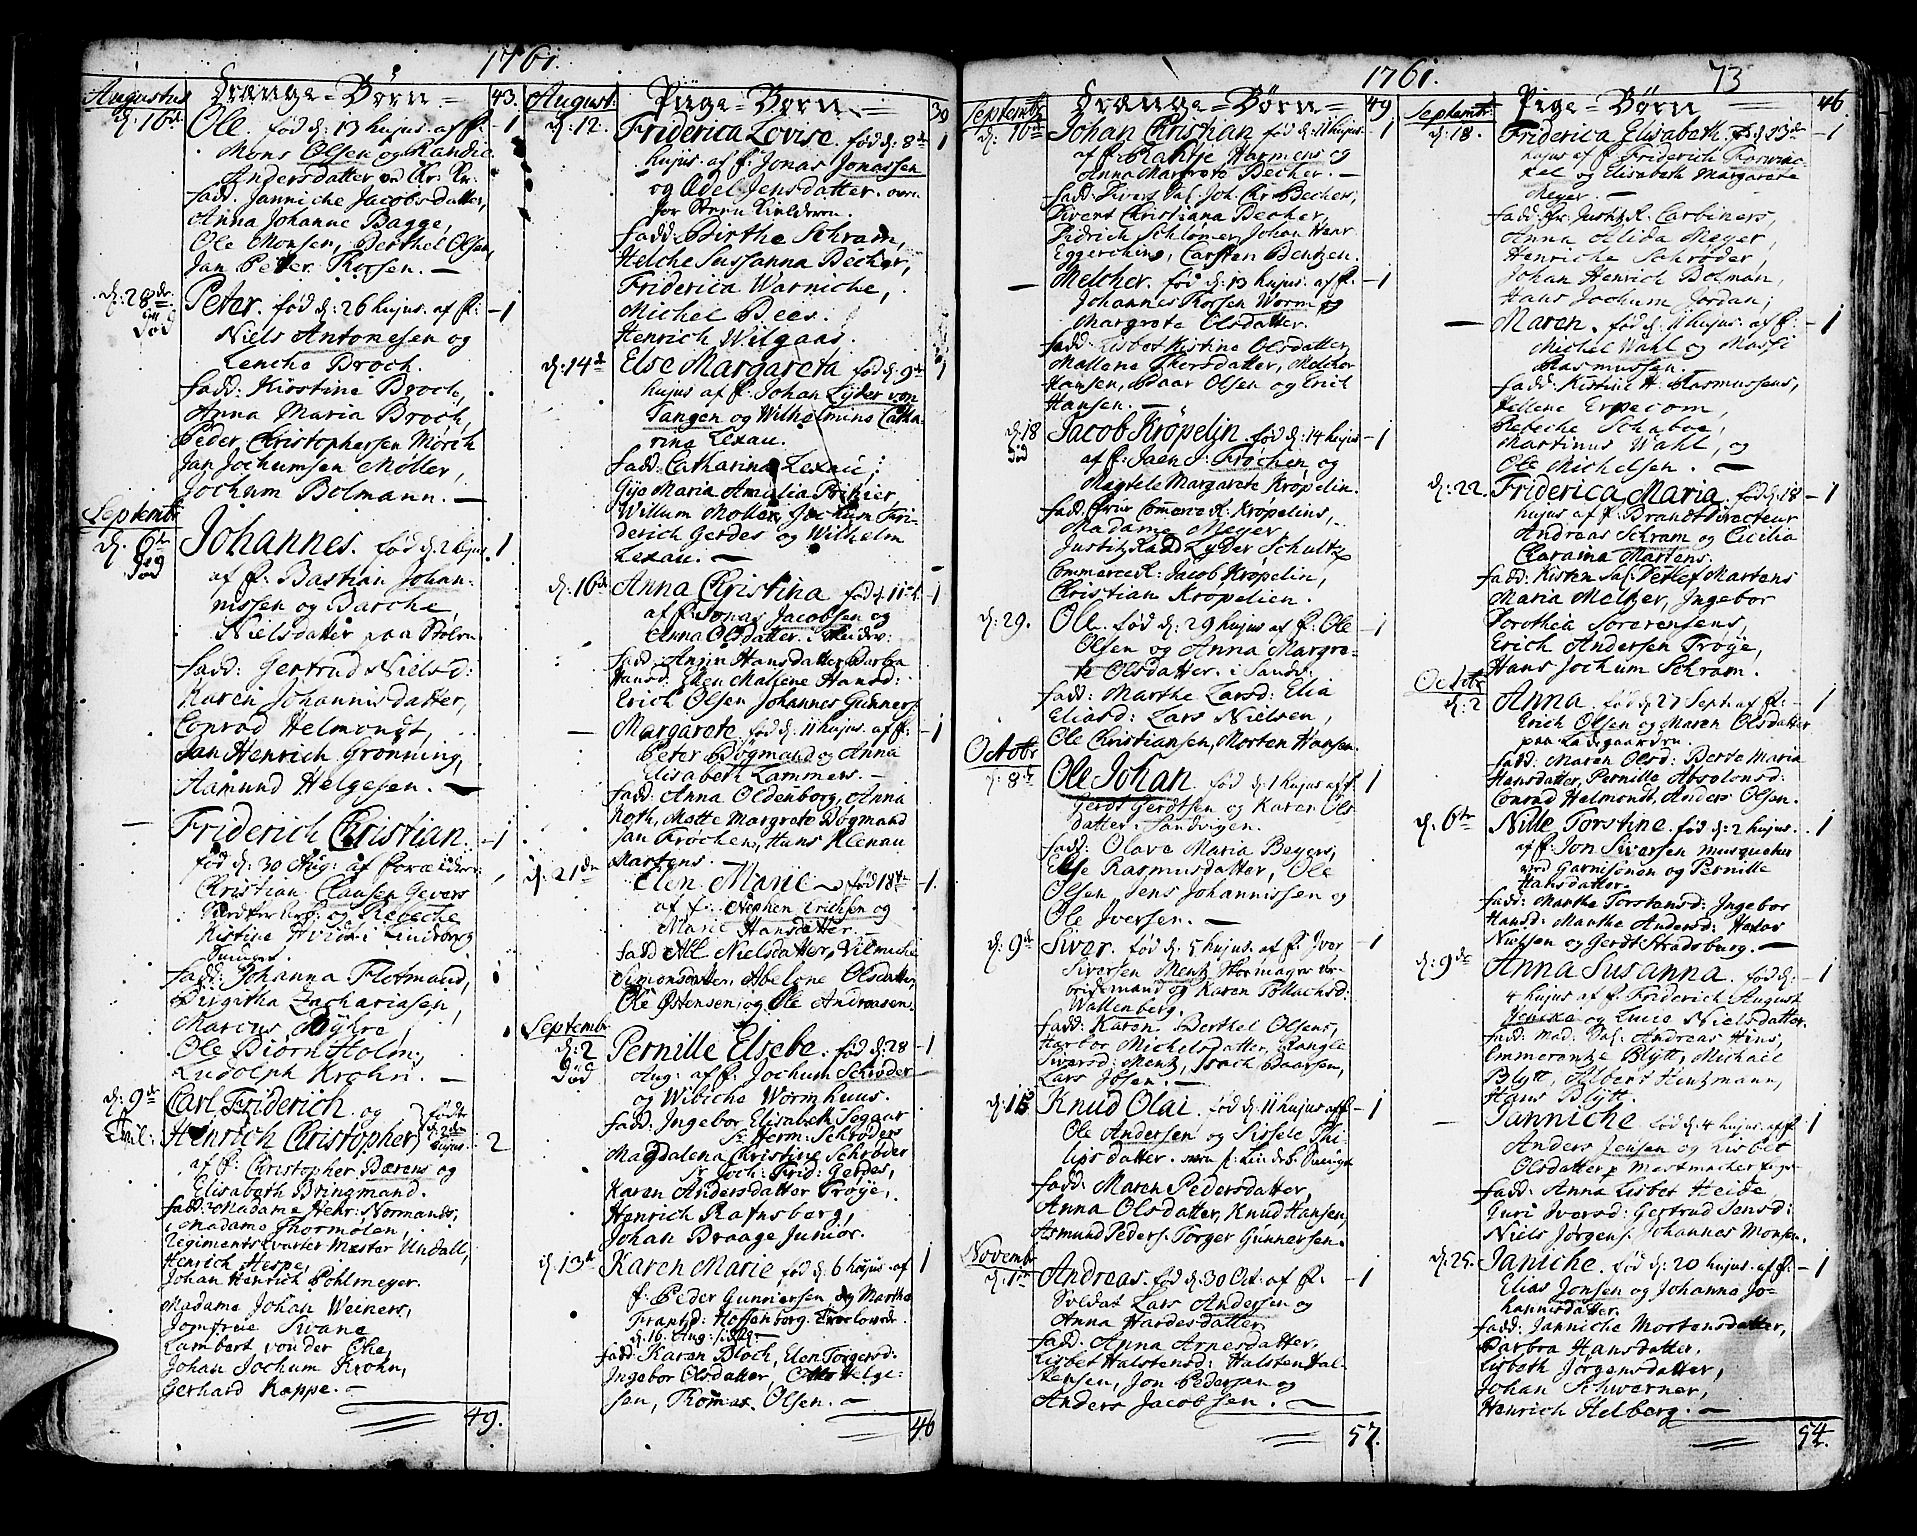 1761.
Augustus Drænge-Børn 43.
d: 16de Ole. fød d: 13 hujus. af f: 1
Mons Olsen og Randie
Andersdatter
fadd: Janniche Jacobsdatter,
Anna Johanne Bagge,
Ole Monsen, Berthel Olsen,
Jan Peter Rossen.
d: 28de Peter. fød d: 26 hujus. af f: 1
død
Niels Antonesen og
Lenche Broch.
fadd: Kirstine Broch,
Anna Maria Broch,
Peder Christophersen Mørch
Jan Jochumsen Møller,
Jochum Bolmann.
Septembr
d: 6te Johannes. fød d: 2 hujus. 1
død
af f: Bastian Johan-
nissen og Barche
Nielsdatter paa Stølen
fadd: Gertrud Nielsd:
Karen Johannisdatter,
Conrad Helmondt,
Jan Henrich Grønning,
Aamund Helgesen.
Friderich Christian. 1
fød d: 30 Aug: af
Christian Clausen Gevers
og Rebeche
Kistine Hvidt i Lindeberg
fadd: Johanna Flotmand,
Birgitha Zachariasen,
Marcus Myhre,
Ole Biørn Holm,
Ludolph Krohn.
d: 9de Carl Friderich og fødte
Tvil: Henrich Christopher d: 2den hujus. 2
af f: Christopher Bærens og
Elisabeth Bringmand.
fadd: Madame Hehr: Normands,
Madame Thormølen,
Regiments Qvarter Mester Undall,
Henrich Hespe,
Johan Henrich Pohlmeyer.
Madame Johan Weiners,
Jomfrue Svane
Lambert von der Ehe,
Johan Jochum Krohn,
Gerhard Kappe.
49.
August: Piige-Børn 39
d: 12. Friderica Lovise. fød d: 8de 1
hujus. af f: Jonas Jonassen
og Adel Jensdatter.
fadd: Birthe Schram,
Helche Sussanna Becher,
Friderica Warniche,
Michel Dees.
Henrich Wilgaas.
d: 14de Else Margareta fød d: 9de 1
hujus af f: Johan Lyder von
Tangen og Wilhelmine Catha-
rina Lexau.
fadd: Catharina Lexau;
Gye Maria Amalia
Willum Møller, Jochum Fri-
derich Gerdes og Wilhelm
Lexau.
d: 16de Anna Christina fød d: 11te 1
af f: Jonas Jacobsen og
Anna Olsdatter.
fadd: Anjin Hansdatter Barbra
Hansd: Ellen Mallene Hansd:
Erich Olsen Johannes Gunners:
Margarete fød d: 11 hujus af f: 1
Peter Døgmand og Anna
Elisabeth Lammers.
fadd: Anna Oldenborg, Anna
Roth, Mette Margrete Døgmand
Jan Frøchen, Hans Klenau
Martens.
d: 21de Elen Marie fød 18de 1.
af f: Stephen Erichsen og
Marie Hansdatter.
fadd All Nielsdatter, Vilmiche
Simonsdatter, Abelone Olsdatter
Ole Østensen, og Ole Andreasen.
Septembr
d: 2 Pernille Elsebe. fød d: 28 1
død Aug: af f: Jochum Schrøder
og Wibiche Wormhuus.
fadd: Ingebor Elisabeth Seggar
Sr. Herm: Schrøders
Magdalena Christine Schrøder
Sr. Joch: Frid: Gerdes,
Karen Andersdatter Trøye,
Henrich Rafnsberg,
Johan Braage Junior.
d: 13de Karen Marie fød d: 6 hujus af 1
f: Peder Gunnersen og Martha
Frantsd: Hossenborg. Trolovede
d. 16. Aug:
fadd: Karen Bloch, Elen Torgersd:
Ingebor Olsdatter, Helge-
sen, Thomas Olsen.
46
1761. 73
Septembr Drænge-Børn 49
d: 16de Johan Christian fød d: 11 hujus 1
af f: Harmens og
Anna Margrete Becher.
fadd: Sivert Sal: Joh: Chr: Becher,
Sivert Christiana Becher,
Didrich Schlømer, Johan Hinr
Eggerching, Carsten Bentzen.
Melcher. fød d: 13 hujus. af f: 1
Johannes Rossen Worm og
Margrete Olsdatter.
fadd: Lisbet Kistine Olsdatter,
Mallene Thersdatter, Melchior
Hansen, Baar Olsen og Erich
Hansen.
d: 18 Jacob Krøpelin. fød d: 14 hujus 1
død af f: Jaen J: Frøchen og
Magtele Margarete Krøpelin.
fadd: Commerce R: Krøpelins,
Madame Meyer,
Justitz Raad Lyder Schultz
Commerce R: Jacob Krøpelin,
Christian Krøpelien.
d: 29. Ole fød d: 29 hujus af f: Ole 1
Olsen og Anna Margre-
te Olsdatter. i Sandv:
fadd: Marthe Larsd: Elia
Eliasd: Lars Nielsen,
Ole Christiansen, Morten Hansen.
Octobr
d: 8de Ole Johan fød d: 1 hujus af f: 1
Gerdt Gerdtsen og Karen Ols
datter: Sandvigen.
fadd: Olave Maria Beyers,
Else Rasmusdatter, Ole
Olsen Jens Johannissen og
Ole Iversen.
d: 9de Siver. fød d: 5 hujus. af f: Iver 1
Siversen Mentz Skomager
og Karen Tollachsd:
Wallenberg.
fadd: Karen Berthel Olsens,
Harbor Michelsdatter, Rangle
Siversd: Mentz, Isach Baarsen,
Lars Ibsen.
d: 15 Knud Olai. fød d: 11 hujus af f: 1
Ole Andersen og Sissele Phi-
lipsdatter.
fadd: Maren Pedersdatter,
Anna Olsdatter, Knud Hansen,
Asmund Peders: Torger Gunnersen.
Novembr
d: 1te Andreas. fød d: 30 Oct: af f: 1
Soldat Lars Andersen og
Anna Hardesdatter,
fadd: Anna Arnesdatter,
Lisbet Halstensd: Halsten Hal-
stensen, Jon Pedersen og
Anders Jacobsen.
57.
Septembr. Pige-Børn 46.
d: 18. Friderica Elisabeth. fød d: 13de 1
hujus af f: Friderich
og Elisabeth Margarete
Meyer.
fadd: Fr. Justitz R. Carbiners,
Anna Alida Meyer,
Henriche Schrøder,
Johan Henrich Bolman,
Hans Jochum Jordan;
Maren. fød d: 11 hujus. af f: 1
Michel Wahl og Massi
Rasmussen.
fadd: Kistine H: Rasmussens,
Hellene Erpecom,
Rebeche Schaboe,
Martinus Wahl, og
Ole Michelsen.
d: 22. Friderica Maria. fød d: 18 1
hujus. af f: Brandt Directeur
Andreas Schram og Cicilia
Martens.
fadd: Kisten Sal: Detlef Martens
Maria Meltzer, Ingebor
Dorothea Sørensens,
Erich Andersen Trøye,
Hans Jochum Schram.
Octobr
d: 2 Anna fød d: 27 Sept. af f: 1
Erich Olsen og Maren Olsdatter
paa Ladegaarden.
fadd: Maren Olsd: Berte Maria
Hansdatter, Pernille Absolonsd:
Conrad Helmondt, Anders Olsen.
d: 6te Nille Torstine. fød d: 2 hujus. 1
af f: Jon Siversen Musqueter
ved Garnisonen og Pernille
Hansdatter.
fadd: Marthe Torstensd: Ingebor
Hansd: Marthe Andersd: Hector
Nielsen og Gerdt Stradsburg.
d: 9de Anna Susanna. fød d: 1
4 hujus af f: Friderich August
og Lucie Nielsdatter.
fadd: Mad: Sal: Andreas Hins,
Emmerentze Blytt, Michael
Blytt, Albert Hentzmann,
Hans Blytt.
Janniche fød d: 4 hujus. af f: 1
Anders Jensen og Lisbet
Olsdatter
fadd: Anna Lisbet Heide,
Guri Iversd: Gertrud Jensd:
Niels Jørgens: Johannes Monsen.
d: 25. Janiche. fød d: 20 hujus. af f: 1
Elias Jonsen og Johanna Jo-
hannisdatter.
fadd: Janniche Mortensdatter,
Barbra Hansdatter,
Lisbeth Jørgensdatter,
Johan Schwerner,
Henrich Helberg.
54.